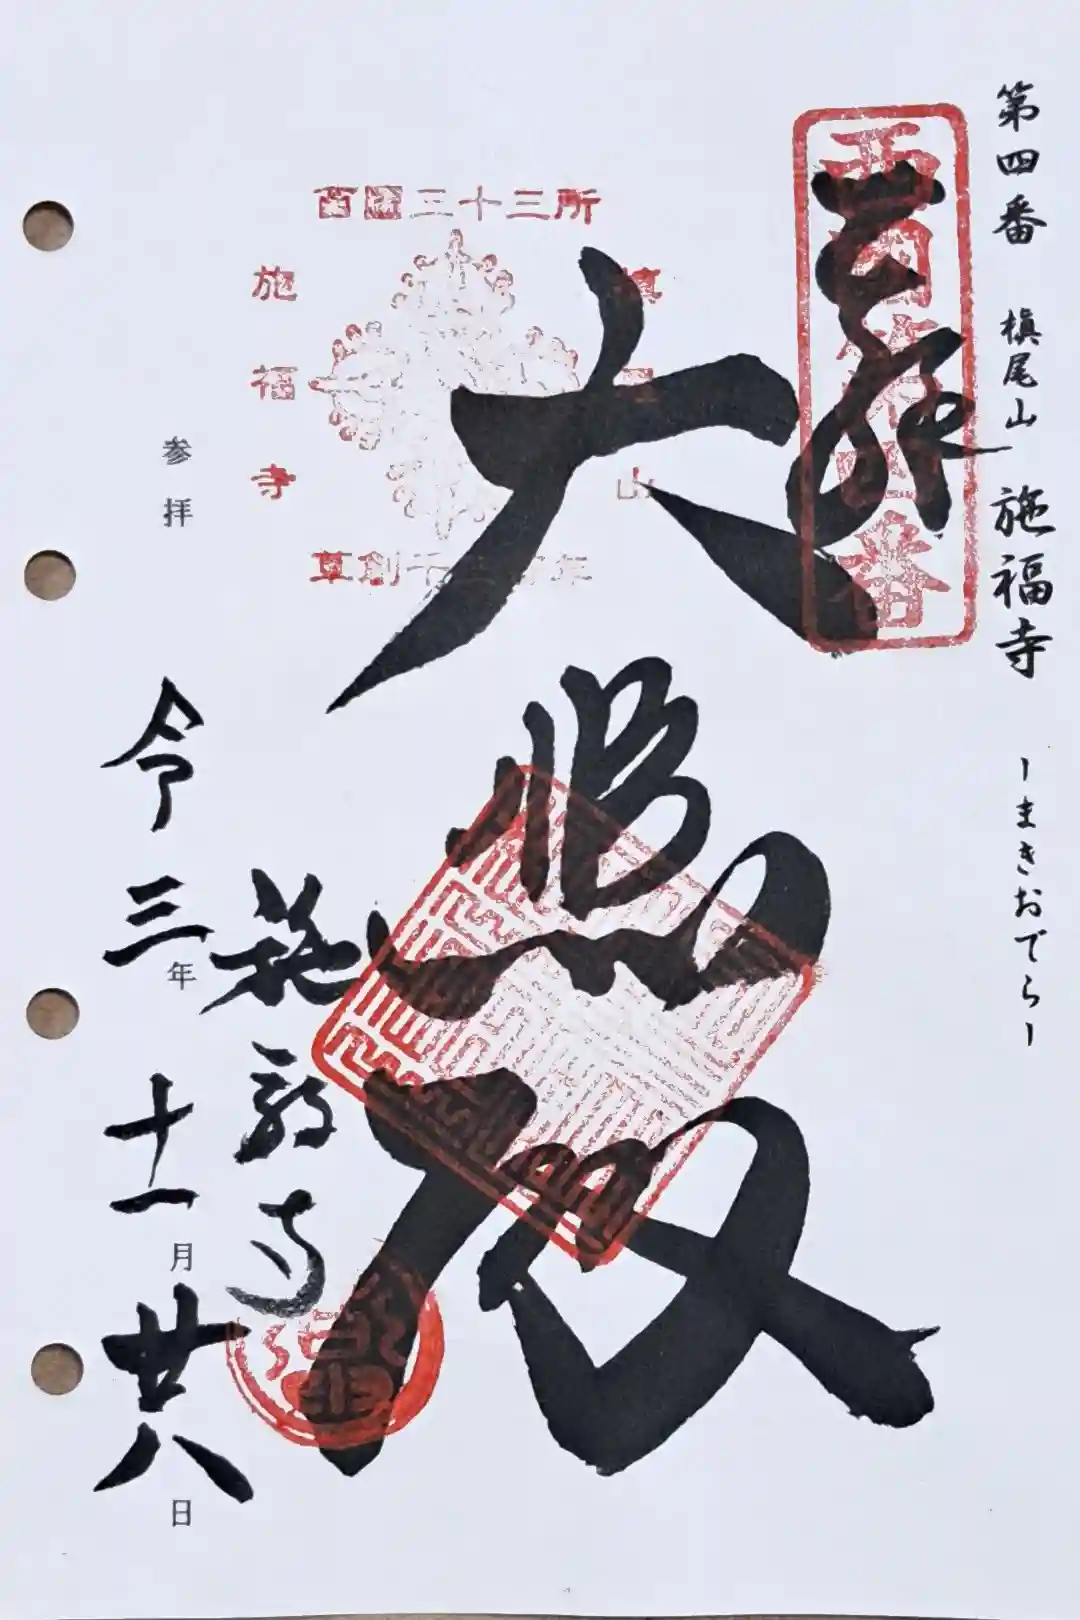 第四番 槇尾山 施福寺 ーまきおでらー
奉拝
西国第四番
大悲殿
西國三十三所
槇尾山
施福寺
草創千三百年
施福寺
参拝
令三年十一月廿八日